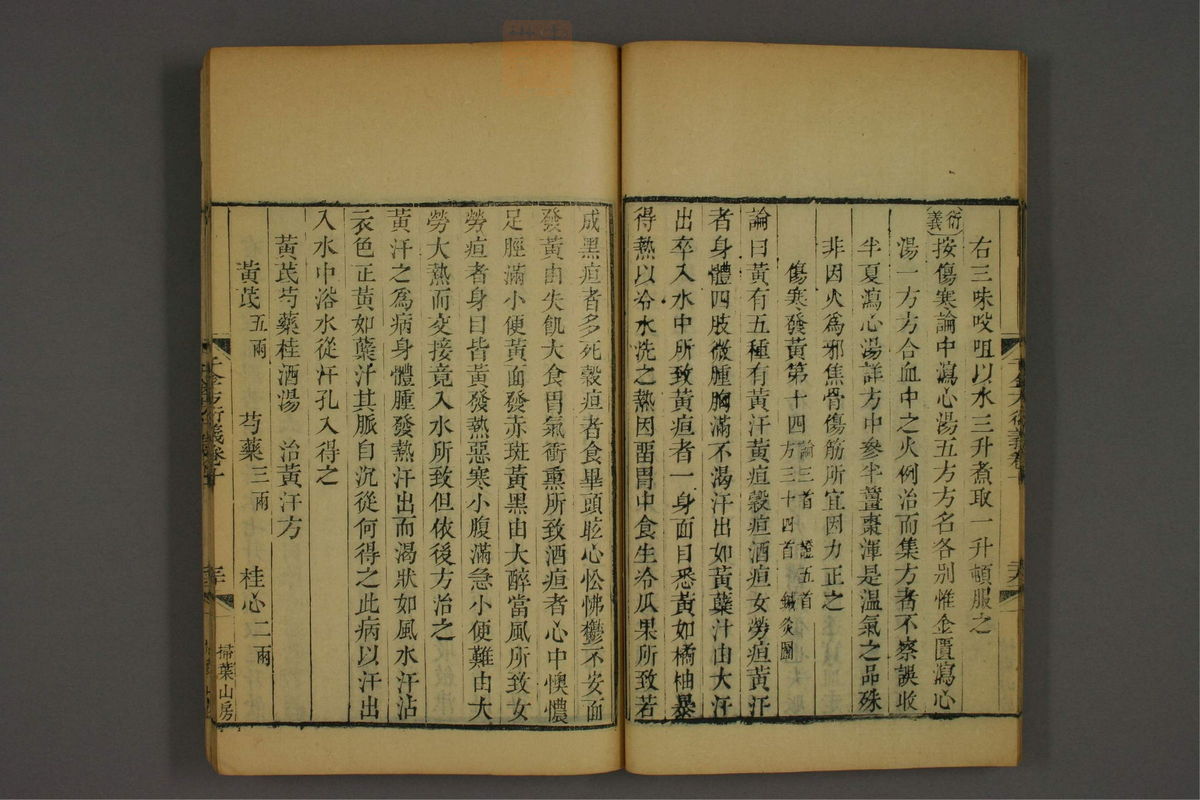 右三味㕮咀以水三升煮取一升頓服之
衍義
按傷寒論中瀉心湯五方方名各別惟金匱瀉心
湯一方方合血中之火例治而集方者不察誤收
半夏瀉心湯詳方中參半薑棗渾是溫氣之品殊
非因火爲邪焦骨傷筋所宜因力正之
傷寒發黃第十四
論三首 證五首
方三十四首 鍼灸圖
論曰黃有五種有黃汗黃疸穀疸酒疸女勞疸黃汗
者身體四肢微腫胸滿不渴汗出如黃蘗汁由大汗
出卒入水中所致黃疸者一身面目悉黃如橘柚暴
得熱以冷水洗之熱因畱胃中食生冷瓜果所致若
成黑疸者多死穀疸者食畢頭眩心忪怫鬱不安面
發黃由失飢大食胃氣衝熏所致酒疸者心中懊憹
足脛滿小便黃面發赤斑黃黑由大醉當風所致女
勞疸者身目皆黃發熱惡寒小腹滿急小便難由大
勞大熱而交接竟入水所致但依後方治之
黃汗之爲病身體腫發熱汗出而渴狀如風水汗沾
衣色正黃如蘗汁其脈自沉從何得之此病以汗出
入水中浴水從汗孔入得之
黃芪芍藥桂酒湯 治黃汗方
黃芪五兩 芍藥三兩 桂心二兩
千金方衍義卷十
掃葉山房